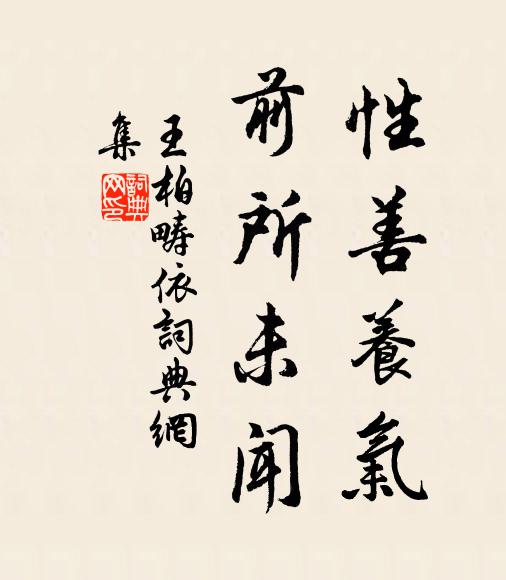 性善養氣
前所未聞
王柏疇依詞典網
集
詞典
网印